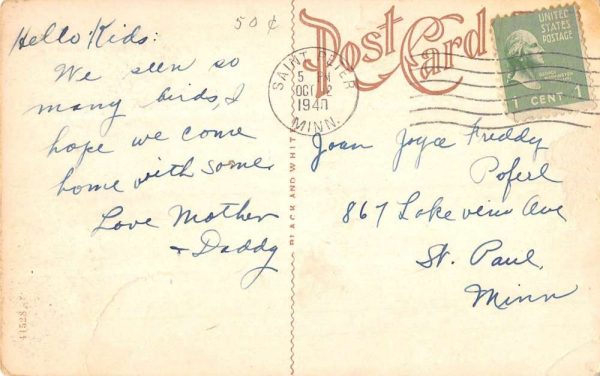 50¢
Hello Kids:
We seen so
many birds, I
hope we come
home with some
Love Mother
+ Daddy
41528
BLACK AND WHITE
Post Card
SAINT PETER
5 PM
OCT 2
1940
MINN.
UNITED
STATES
POSTAGE
1 CENT 1
Joan Joyce Freddy
Poferl
867 Lakeview Ave
St. Paul,
Minn